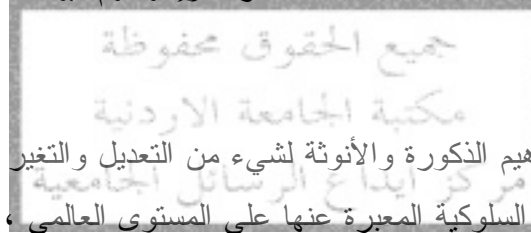 جميع الحقوق محفوظة
مكتبة الجامعة الاردنية
هيم الذكورة والأنوثة لشيء من التعديل والتغير
مركز ايداع الرسائل الجامعية
السلوكية المعبرة عنها على المستوى العالمي ،